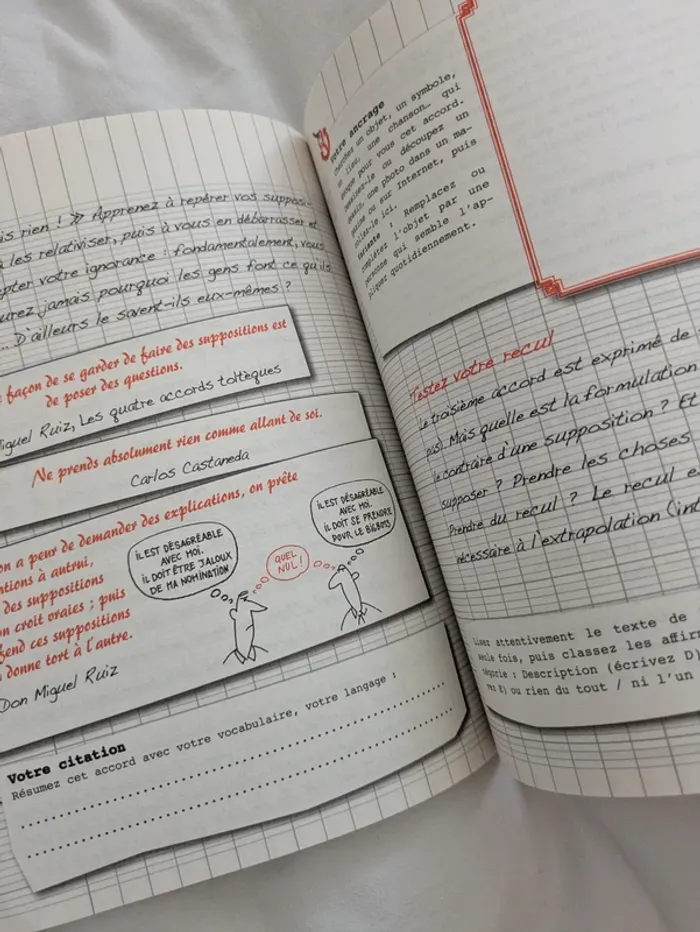 is rien ! » Apprenez à repérer vos suppos-
les relativiser, puis à vous en débarrasser et
pter votre ignorance : fondamentalement, vous
urez jamais pourquoi les gens font ce qu'ils
... D'ailleurs le savent-ils eux-mêmes ?
façon de se garder de faire des suppositions est
de poser des questions.
iguel Ruiz, Les quatre accords toltèques
Ne prends absolument rien comme allant de soi.
Carlos Castaneda
on a peur de demander des explications, on prête
ntions à autrui,
des suppositions
on croit vraies ; puis
fend ces suppositions
donne tort à l'autre.
Don Miguel Ruiz
IL EST DÉSAGRÉABLE
AVEC MOI.
IL DOIT ÊTRE JALOUX
DE MA NOMINATION
QUEL
NUL !
IL EST DÉSAGRÉABLE
AVEC MOI.
IL DOIT SE PRENDRE
POUR LE BIGBOSS
Votre citation
Résumez cet accord avec votre vocabulaire, votre langage :
Votre ancrage
Cherchez un objet, un symbole,
un lieu, une chanson… qui
évoque pour vous cet accord.
Dessinez-le ou découpez un
dessin, une photo dans un ma-
gazine ou sur Internet, puis
collez-le ici.
Variante : Remplacez ou
complétez l'objet par une
personne qui semble l'ap-
pliquer quotidiennement.
Testez votre recul
Le troisième accord est exprimé de
pas). Mais quelle est la formulation
le contraire d'une supposition ? Et
supposer ? Prendre les choses
Prendre du recul ? Le recul e
nécessaire à l'extrapolation (int
Lisez attentivement le texte de
seule fois, puis classez les affir
tégorie : Description (écrivez D)
vez E) ou rien du tout / ni l'un